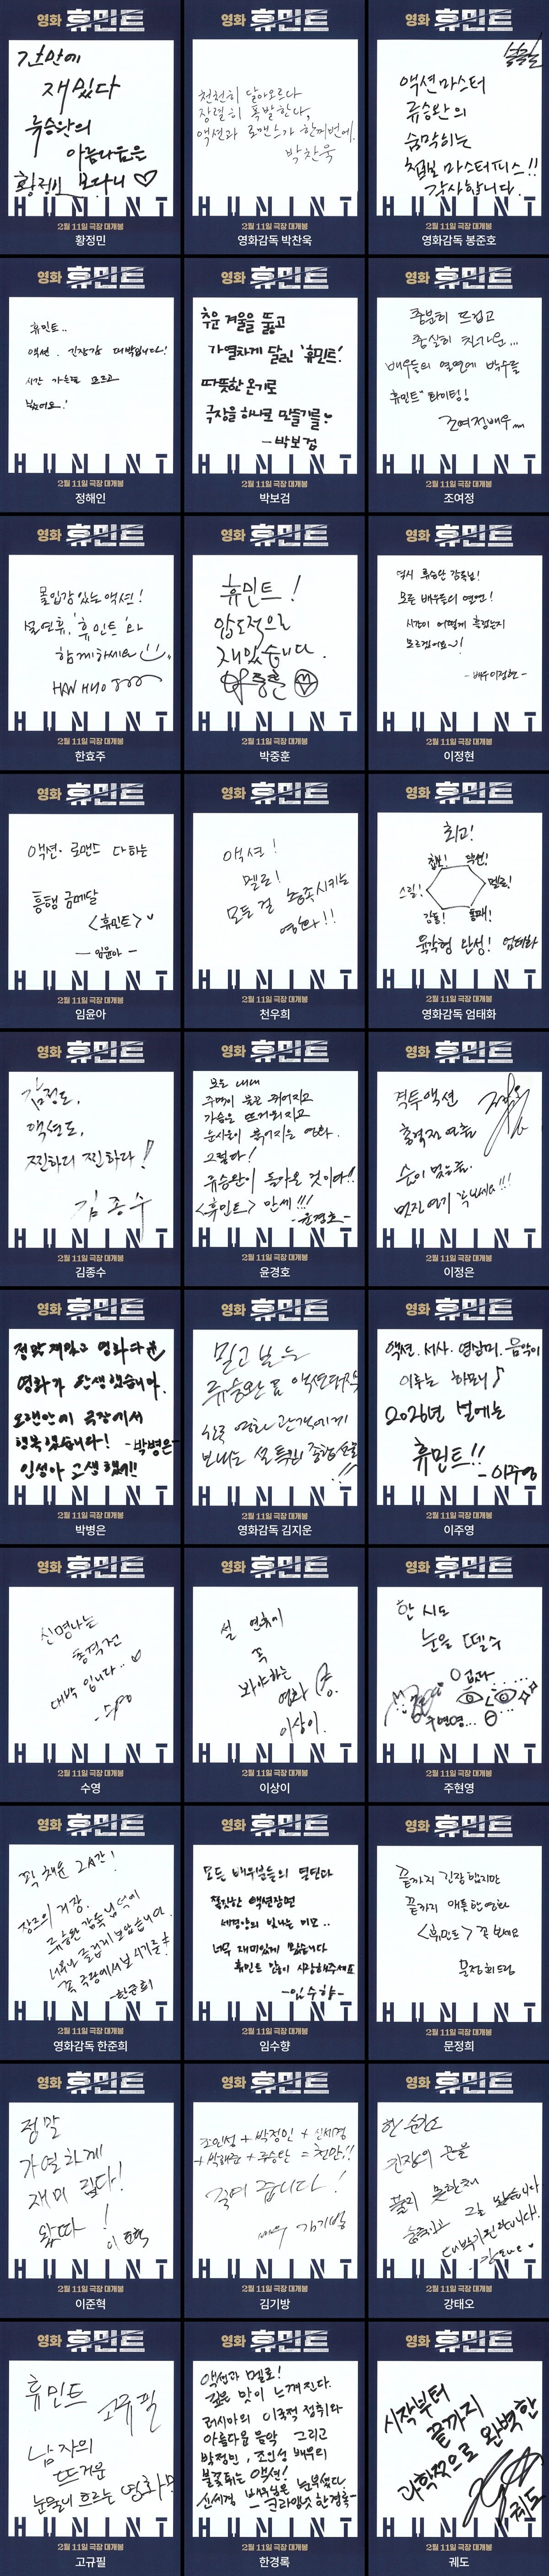 영화 휴민트
간만에
재밌다
류승완의
아름다움은
황정민 보다니 ♡
HUMINT
2월 11일 극장 대개봉
황정민
영화 휴민트
천천히 달아오르다
장렬히 폭발한다,
액션과 로맨스가 한꺼번에.
박찬욱
HUMINT
2월 11일 극장 대개봉
영화감독 박찬욱
영화 휴민트
액션마스터
류승완의
숨막히는
첩보 마스터피스!!
감사합니다.
HUMINT
2월 11일 극장 대개봉
영화감독 봉준호
영화 휴민트
휴민트..
액션. 긴장감 대박입니다!
시간 가는줄 모르고
봤어요!
HUMINT
2월 11일 극장 대개봉
정해인
영화 휴민트
추운 겨울을 뚫고
가열차게 달린 '휴민트'!
따뜻한 온기로
극장을 하나로 만들기를♥
-박보검
HUMINT
2월 11일 극장 대개봉
박보검
영화 휴민트
충분히 뜨겁고
충실히 차가운...
배우들의 열연에 박수를
휴민트" 화이팅!
조여정배우
HUMINT
2월 11일 극장 대개봉
조여정
영화 휴민트
몰입감있는 액션!
설 연휴, '휴민트'와
함께하세요
HAN HYO JOO
HUMINT
2월 11일 극장 대개봉
한효주
영화 휴민트
휴민트!
압도적으로
재밌습니다.
박중훈
HUMINT
2월 11일 극장 대개봉
박중훈
영화 휴민트
역시 류승완 감독님!
모든 배우들의 열연!
시간이 어떻게 흘렀는지
모르겠어요~!
-배우 이정현-
HUMINT
2월 11일 극장 대개봉
이정현
영화 휴민트
액션. 로맨스 다하는
흥행 금메달
<휴민트>♥
- 임윤아 -
HUMINT
2월 11일 극장 대개봉
임윤아
영화 휴민트
액션!
멜로!
모든 걸 충족시키는
영화다!!
HUMINT
2월 11일 극장 대개봉
천우희
영화 휴민트
최고!
첩보! 액션!
스릴! 멜로!
감동! 통쾌!
육각형 완성! 엄태화
HUMINT
2월 11일 극장 대개봉
영화감독 엄태화
영화 휴민트
감정도,
액션도,
찐하디 찐하다!
김종수
HUMINT
2월 11일 극장 대개봉
김종수
영화 휴민트
보는 내내
주먹이 불끈 쥐어지고
가슴은 뜨거워지고
눈시울이 붉어지는 영화.
그렇다!
류승완이 돌아온 것이다!!
<휴민트> 만세!!!
-윤경호-
HUMINT
2월 11일 극장 대개봉
윤경호
영화 휴민트
격투액션
총격전 연출
숨이 멎는듯.
멋진 연기 꼭 보세요!!!
HUMINT
2월 11일 극장 대개봉
이정은
영화 휴민트
정말 재밌고 영화다운
영화가 탄생했습니다.
오랜만에 극장에서
행복했습니다! -박병은-
인성아 고생했어!!
HUMINT
2월 11일 극장 대개봉
박병은
영화 휴민트
믿고 보는
류승완 표 액션대작
한국 영화 관객에게
보내는 설 특집 종합선물!!
HUMINT
2월 11일 극장 대개봉
영화감독 김지운
영화 휴민트
액션. 서사. 영상미. 음악이
이루는 하모니♪
2026년 설에는
휴민트!!
-이주영
HUMINT
2월 11일 극장 대개봉
이주영
영화 휴민트
신명나는
총격전
대박 입니다..♡
HUMINT
2월 11일 극장 대개봉
수영
영화 휴민트
설 연휴에
꼭
봐야하는
영화
이상이.
HUMINT
2월 11일 극장 대개봉
이상이
영화 휴민트
한 시도
눈을 뗄 수
없다
주현영...
HUMINT
2월 11일 극장 대개봉
주현영
영화 휴민트
꽉 채운 2시간!
장르의 거장.
류승완 감독님 덕에
너무나 즐겁게 보았습니다.
꼭 극장에서 보시기를!
-한준희
HUMINT
2월 11일 극장 대개봉
영화감독 한준희
영화 휴민트
모든 배우분들의 열연과
절절한 액션장면
세경양의 빛나는 미모..
너무 재미있게 봤습니다
휴민트 많이 사랑해주세요
-임수향-
HUMINT
2월 11일 극장 대개봉
임수향
영화 휴민트
끝까지 긴장했지만
끝까지 애틋한 영화
<휴민트> 꼭 보세요
문정희드림
HUMINT
2월 11일 극장 대개봉
문정희
영화 휴민트
정말
가열하게
재미 있다!
왔따!
이준혁
HUMINT
2월 11일 극장 대개봉
이준혁
영화 휴민트
조인성+박정민+신세경
+박해준+류승완=천만!!
죽여 줍니다!
배우 김기방
HUMINT
2월 11일 극장 대개봉
김기방
영화 휴민트
한 순간도
긴장의 끈을
풀지 못한채
숨죽이고 그냥 봤습니다
대박기원합니다!
-강태오♥
HUMINT
2월 11일 극장 대개봉
강태오
영화 휴민트
휴민트 고규필
남자의
뜨거운
눈물이 흐르는 영화!!
HUMINT
2월 11일 극장 대개봉
고규필
영화 휴민트
액션과 멜로!
깊은 맛이 느껴진다.
러시아의 이국적 정취와
아름다운 음악 그리고
박정민, 조인성 배우의
불꽃튀는 액션!
신세경 배우님은 눈부셨다
- 크라잉넛 한경록-
HUMINT
2월 11일 극장 대개봉
한경록
영화 휴민트
시작부터
끝까지
과학적으로 완벽한
궤도
HUMINT
2월 11일 극장 대개봉
궤도